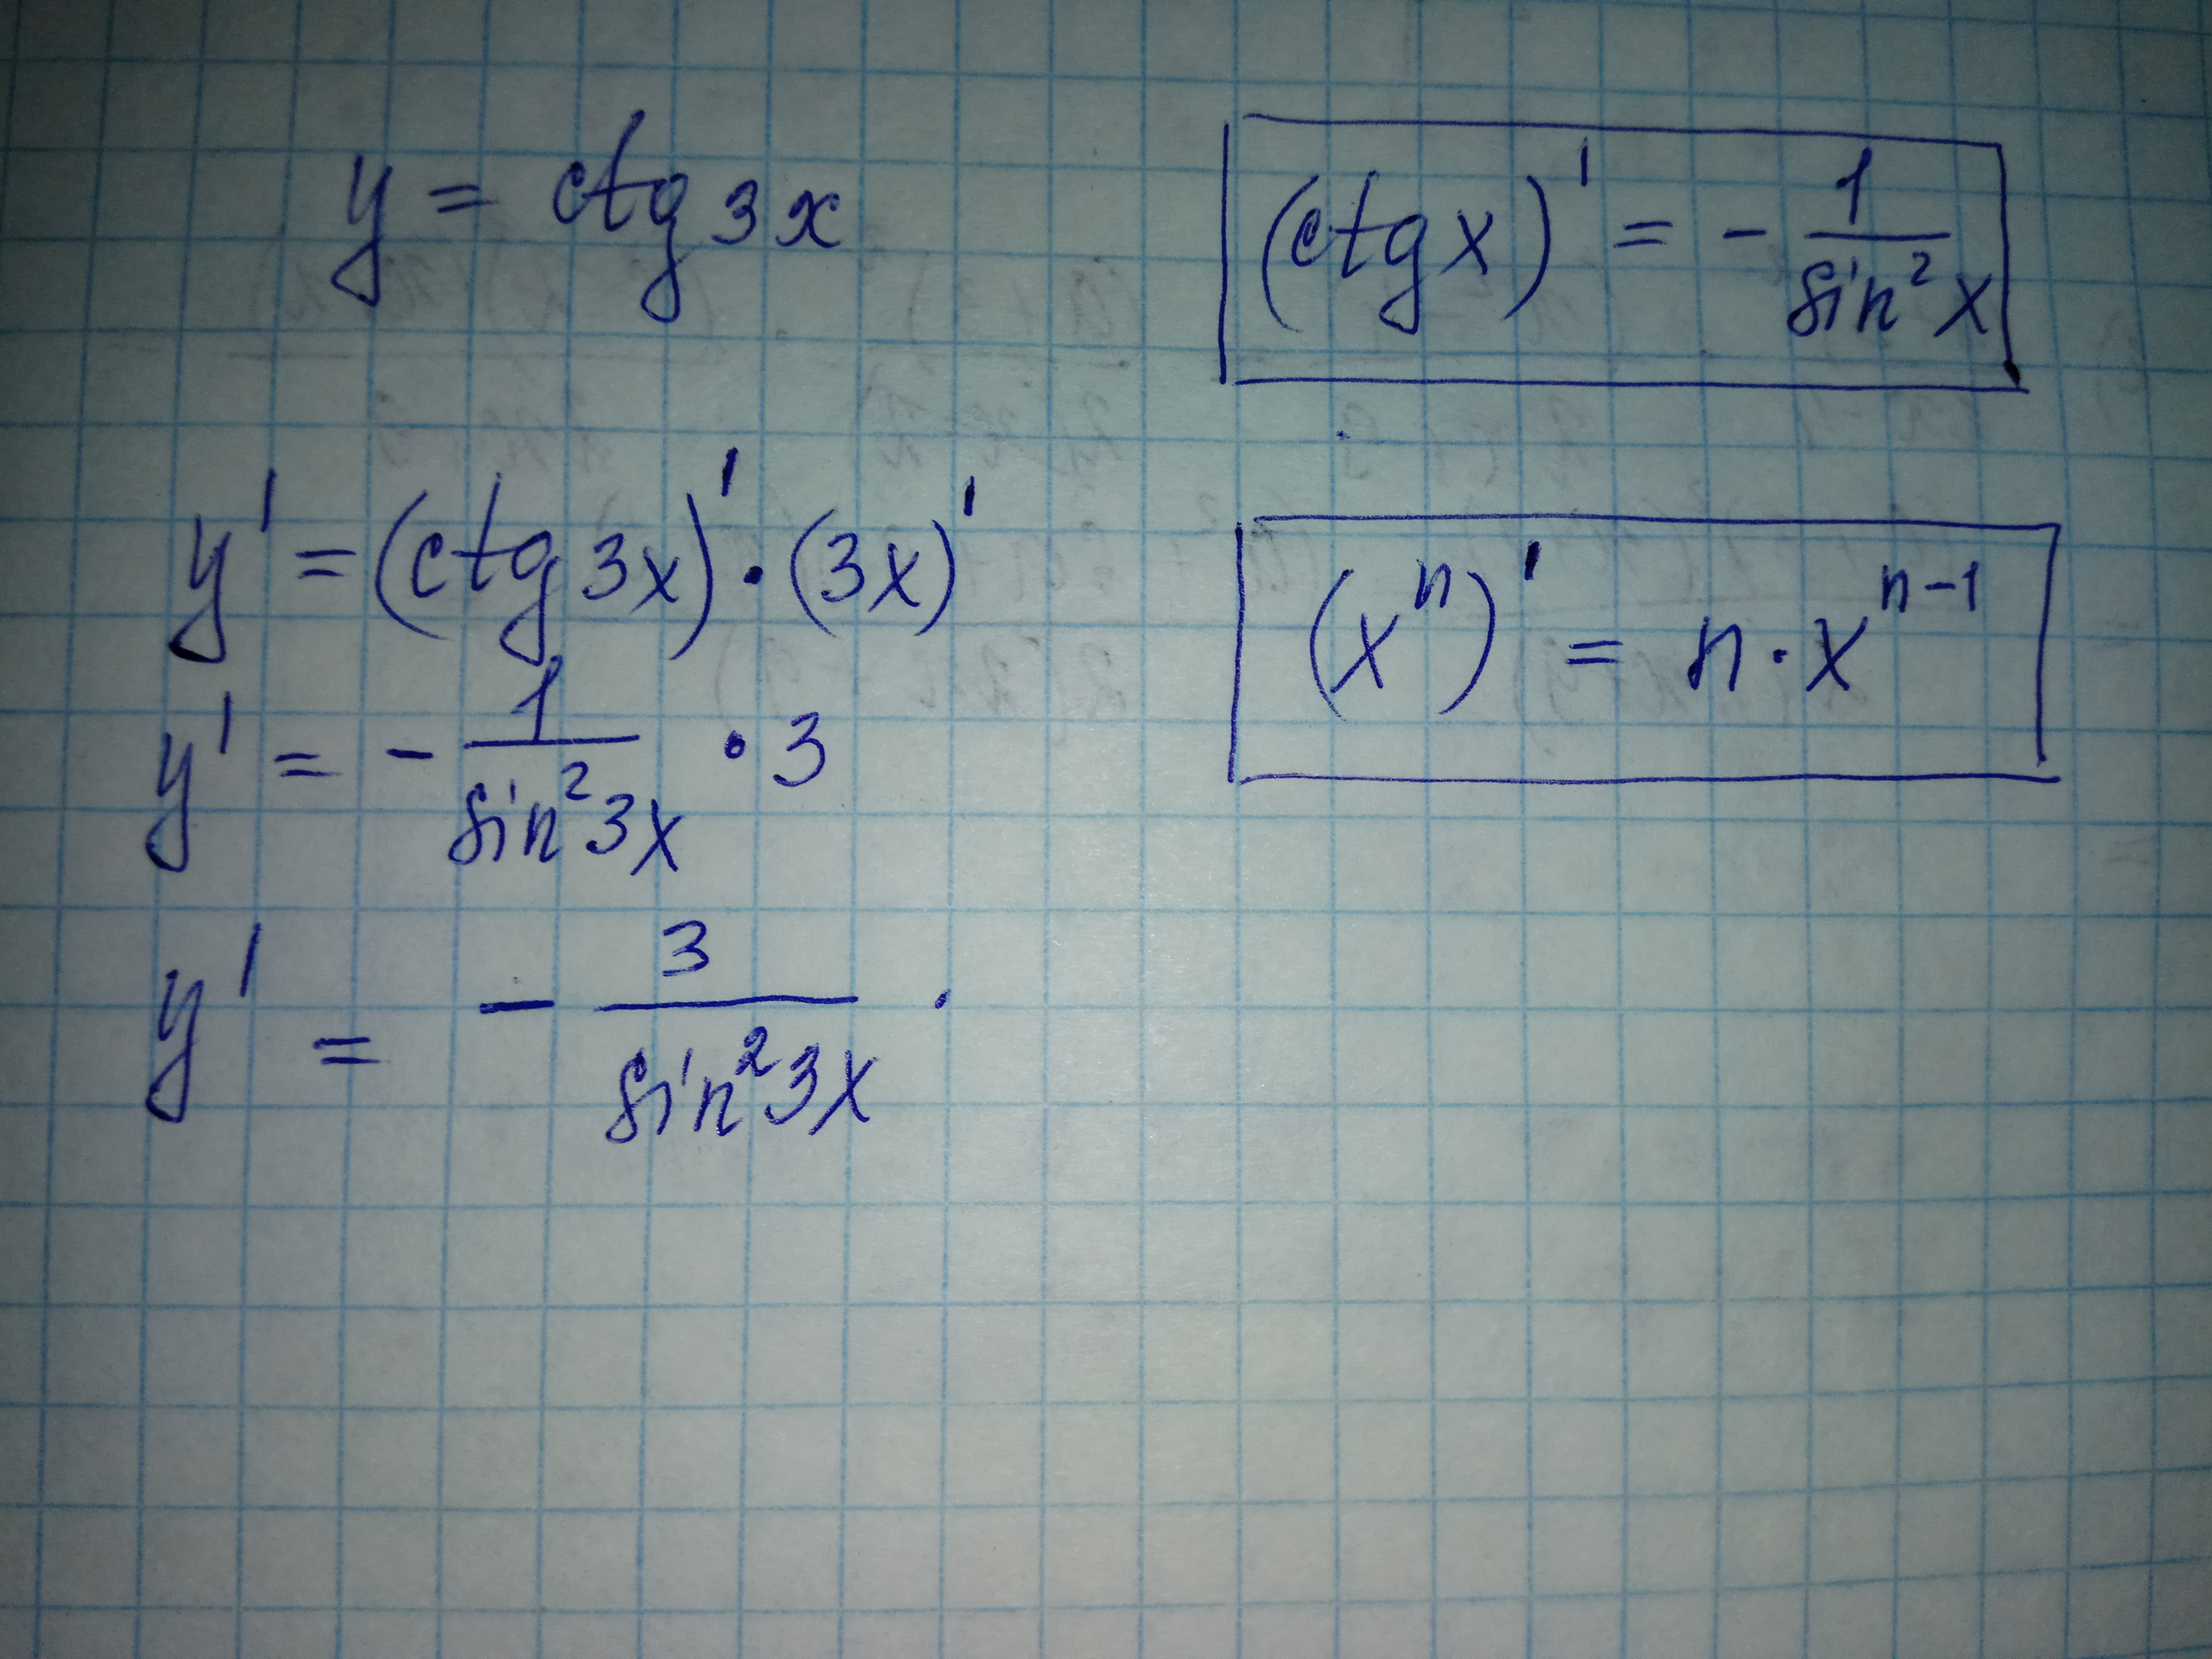 y = ctg 3x
(ctg x)' = - 1/sin²x
y' = (ctg 3x)' · (3x)'
(xⁿ)' = n · xⁿ⁻¹
y' = - 1/sin²3x · 3
y' = - 3/sin²3x .